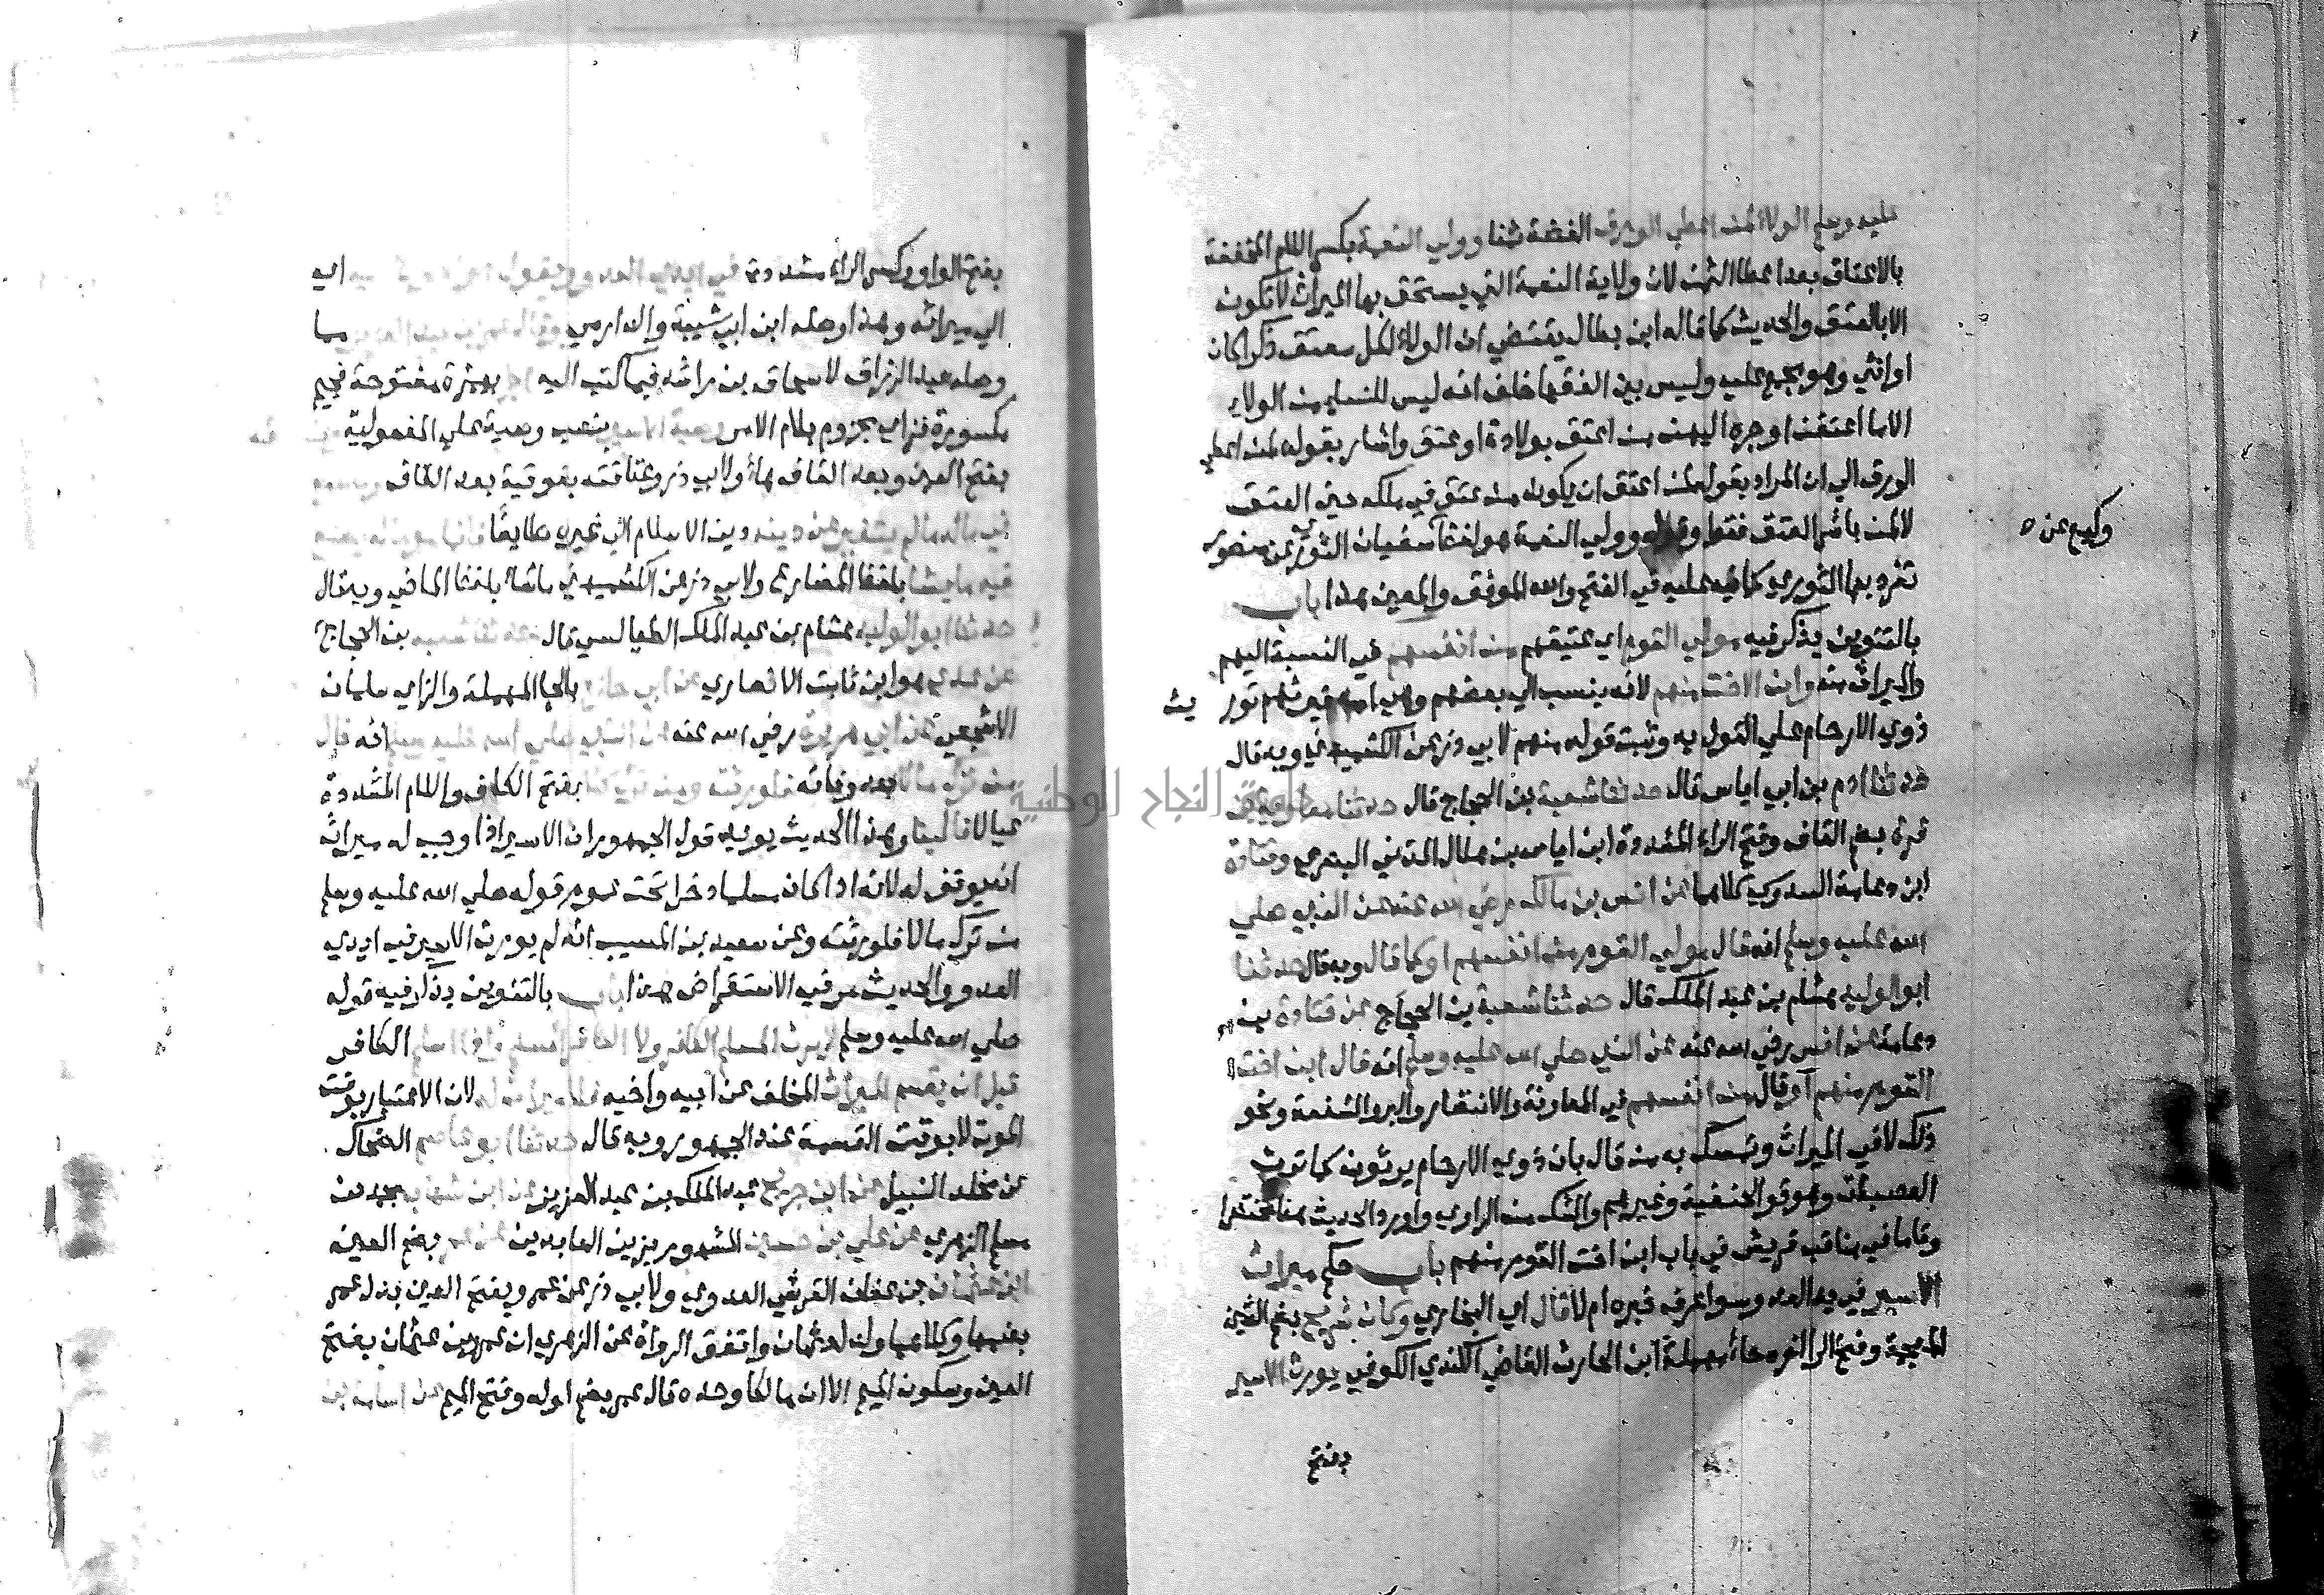 عليه وسلم الولاء لمن اعطي الورق الفضة ثمنا وولي النعمة بكسر اللام المخففة
بالاعتاق بعد اعطا الثمن لان ولاية النعمة التي يستحق بها الميراث لا تكون
الا بالعتق والحديث كما قاله ابن بطال يقتضي ان الولاء لكل معتق ذكرا كان
او انثي وهو مجمع عليه وليس بين الفقها خلف انه ليس للنسا من الولاء
الا ما اعتقن او جره اليهن من اعتق بولادة او عتق واشار بقوله لمن اعطي
الورق الي ان المراد بقوله لمن اعتق ان يكون من عتق في ملكه حين العتق
لا لمن باشر العتق فقط وقوله وولي النعمة هو لفظ سفيان الثوري عن منصور
وكيع عن
تفرد بها الثوري كما عليه في الفتح والله الموفق والمعين هذا باب
بالتنوين يذكر فيه مولي القوم اي عتيقهم من انفسهم في النسبة اليهم
والميراث منه وابن الاخت منهم لانه ينسب الي بعضهم وهي امه فيرثهم توريث
ذوي الارحام علي القول به وثبت قوله منهم لابي ذر عن الكشميهني وبه قال
حدثنا ادم بن ابي اياس قال حدثنا شعبة بن الحجاج قال حدثنا معاوية بن
قرة بضم القاف وفتح الراء المشددة ابن اياس بن هلال المدني البصري وقتادة
ابن دعامة السدوسي كلاهما عن انس بن مالك رضي الله عنه عن النبي صلي
الله عليه وسلم انه قال مولي القوم من انفسهم او كما قال وبه قال حدثنا
ابو الوليد هشام بن عبد الملك قال حدثنا شعبة بن الحجاج عن قتادة بن
دعامة عن انس رضي الله عنه عن النبي صلي الله عليه وسلم انه قال ابن اخت
القوم منهم او قال من انفسهم في المعاونة والانتصار والبر والشفقة ونحو
ذلك لا في الميراث وتمسك به من قال بان ذوي الارحام يرثون كما ترث
العصبات وهو قول الحنفية وغيرهم والشك من الراوي واورد الحديث هنا مختصرا
وتاما في مناقب قريش في باب ابن اخت القوم منهم باب حكم ميراث
الاسير في يد العدو سوا عرف خبره ام لا قال اي البخاري وكان شريح بضم الشين
المعجمة وفتح الرا اخره حاء مهملة ابن الحارث القاضي الكندي الكوفي يورث الاسير
بفتح
بفتح الواو وكسر الراء مشددة في ايدي العدو ويقول هو احوج اليه اي
الي ميراثه وهذا وصله ابن ابي شيبة والدارمي وقال عمر بن عبد العزيز مما
وصله عبد الرزاق لاسحاق بن راشد فيما كتب اليه بهمزة مفتوحة فجيم
مكسورة فزاي مجزوم بلام الامر وصية الاسير بنصب وصية علي المفعولية
بفتح العين وبعد القاف هاء ولابي ذر وعتاقته بفوقية بعد القاف
في ماله ما لم يتغير عن دينه دين الاسلام الي غيره طايعا فانما هو ماله يصنع
فيه ما يشا بلفظ المضارع ولابي ذر عن الكشميهني ما شاء بلفظ الماضي وبه قال
حدثنا ابو الوليد هشام بن عبد الملك الطيالسي قال حدثنا شعبة بن الحجاج
عن عدي هو ابن ثابت الانصاري عن ابي حازم بالحا المهملة والزاي سلمان
الاشجعي عن ابي هريرة رضي الله عنه عن النبي صلي الله عليه وسلم انه قال
من ترك مالا بعد وفاته فلورثته ومن ترك كلا بفتح الكاف واللام المشددة
عيالا فالينا وبهذا الحديث يويد قول الجمهور ان الاسير اذا وجب له ميراث
انه يوقف له لانه اذا كان مسلما دخل تحت عموم قوله صلي الله عليه وسلم
من ترك مالا فلورثته وعن سعيد بن المسيب انه لم يورث الاسير في ايدي
العدو والحديث مر في الاستقراض هذا باب بالتنوين يذكر فيه قوله
صلي الله عليه وسلم لا يرث المسلم الكافر ولا الكافر المسلم واذا اسلم الكافر
قبل ان يقسم الميراث المخلف عن ابيه واخيه فلا ميراث له لان الاعتبار بوقت
الموت لا بوقت القسمة عند الجمهور وبه قال حدثنا ابو عاصم الضحاك
عن مخلد النبيل عن ابن جريج عبد الملك بن عبد العزيز عن ابن شهاب محمد بن
مسلم الزهري عن علي بن حسين المشهور بزين العابدين عن عمر بضم العين
ابن عثمان بن عفان القرشي العدوي ولابي ذر عن عمرو بفتح العين بدل عمر
بضمها وكلاهما ولد لعثمان واتفق الرواة عن الزهري ان عمرو بن عثمان بفتح
العين وسكون الميم الا ان مالكا وحده قال عمر بضم اوله وفتح الميم عن اسامة بن